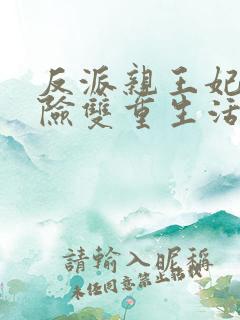 反派親王妃
險雙重生活
請輸入昵稱
未任同意禁止轉載